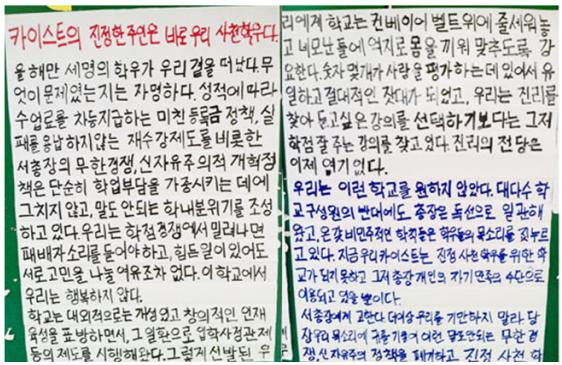 카이스트의 진정한 주인은 바로 우리 사천학우다.
올해만 세명의 학우가 우리 곁을 떠났다. 무
엇이 문제였는지는 자명하다. 성적에 따라
수업료를 차등지급하는 미친 등록금 정책, 실
패를 용납하지않는 재수강제도를 비롯한
서총장의 무한경쟁, 신자유주의적 개혁정
책은 단순히 학업부담을 가중시키는 데에
그치지 않고, 말도 안되는 학내분위기를 조성
하고 있다. 우리는 학점경쟁에서 밀려나면
패배자 소리를 들어야 하고, 힘든일이 있어도
서로 고민을 나눌 여유조차 없다. 이 학교에서
우리는 행복하지 않다.
학교는 대외적으로는 개성있고 창의적인 인재
육성을 표방하면서, 그 일환으로 입학사정관제
등의 제도를 시행해왔다. 그렇게 선발된 우
리에게 학교는 컨베이어 벨트위에 줄세워놓
고 네모난 틀에 억지로 몸을 끼워 맞추도록 강
요한다. 숫자 몇개가 사람을 평가하는 데 있어서 유
일하고 절대적인 잣대가 되었고, 우리는 진리를
찾아 듣고싶은 강의를 선택하기보다는 그저
학점 잘 주는 강의를 찾고있다. 진리의 전당은
이제 여기 없다.
우리는 이런 학교를 원하지 않았다. 대다수 학
교구성원의 반대에도 총장은 독선으로 일관해
왔고, 온갖 비민주적인 학칙들은 학우들의 목소리를 짓누르
고 있다. 지금 우리 카이스트는 진정 사천 학우를 위한 학
교가 되지 못하고 그저 총장 개인의 자기만족의 수단으로
이용되고 있을 뿐이다.
서총장에게 고한다. 더이상 우리를 기만하지 말라. 당
장 우리 목소리에 귀를 기울여 이런 말도안되는 무한경
쟁, 신자유주의 정책을 폐기하고, 진정 사천 학